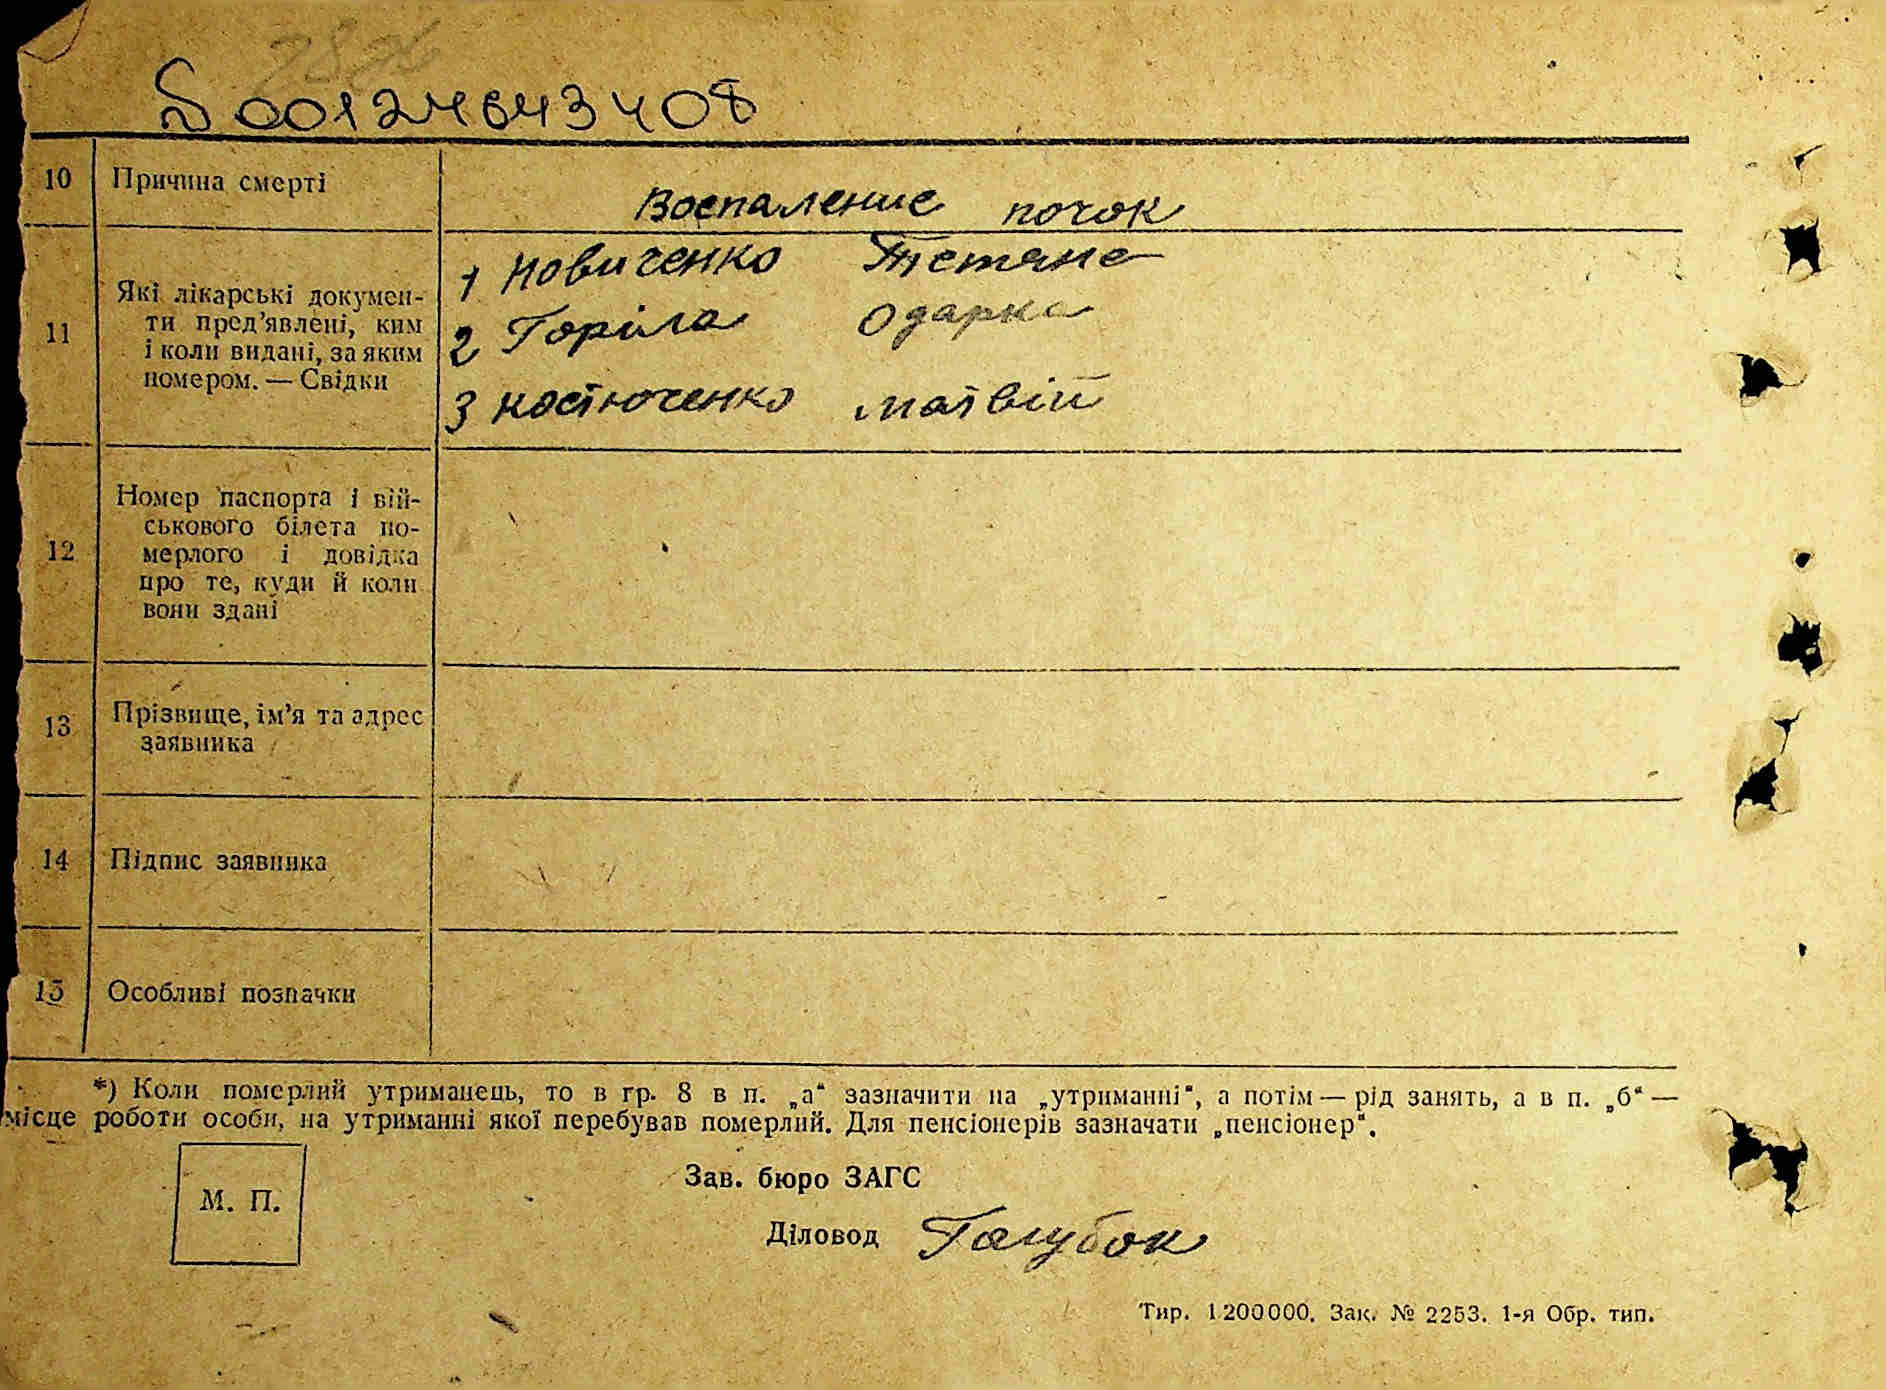 00124643408
10 Причина смерті Воспаление почок
11 Які лікарські докумен-
ти пред’явлені, ким
і коли видані, за яким
номером. — Свідки
1 Новиченко Тетяне
2 Горіла Одарка
3 Костюченко Матвій
12 Номер паспорта і вій-
ськового білета по-
мерлого і довідка
про те, куди й коли
вони здані
13 Прізвище, ім’я та адрес
заявника
14 Підпис заявника
15 Особливі позначки
*) Коли померлий утриманець, то в гр. 8 в п. „а“ зазначити на „утриманні“, а потім — рід занять, а в п. „б“ —
місце роботи особи, на утриманні якої перебував померлий. Для пенсіонерів зазначати „пенсіонер“.
М. П.
Зав. бюро ЗАГС
Діловод Голубок
Тир. 1.200000. Зак. № 2253. 1-я Обр. тип.